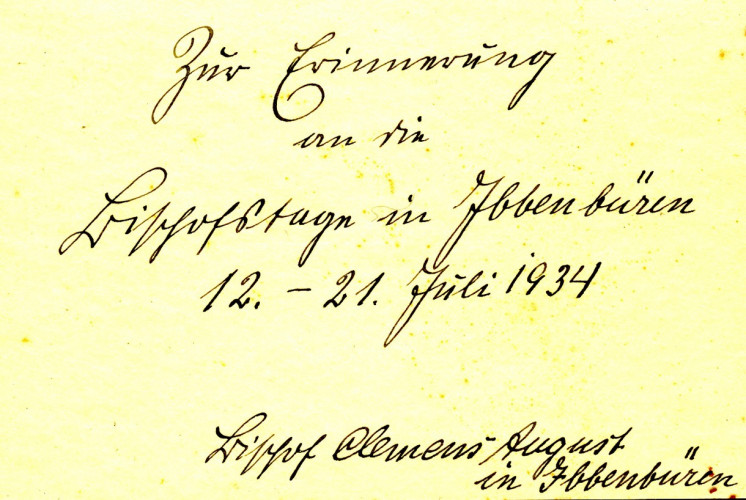 Zur Erinnerung
an die
Bischofstage in Ibbenbüren
12. - 21. Juli 1934
Bischof Clemens August
in Ibbenbüren